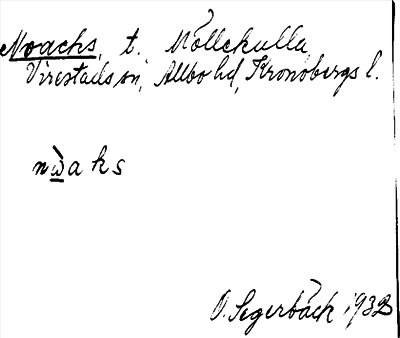 Noachs, t. Möllekulla,
Virestads sn, Allbo hd, Kronobergs l.
nẁaks
O. Segerbäck 1932